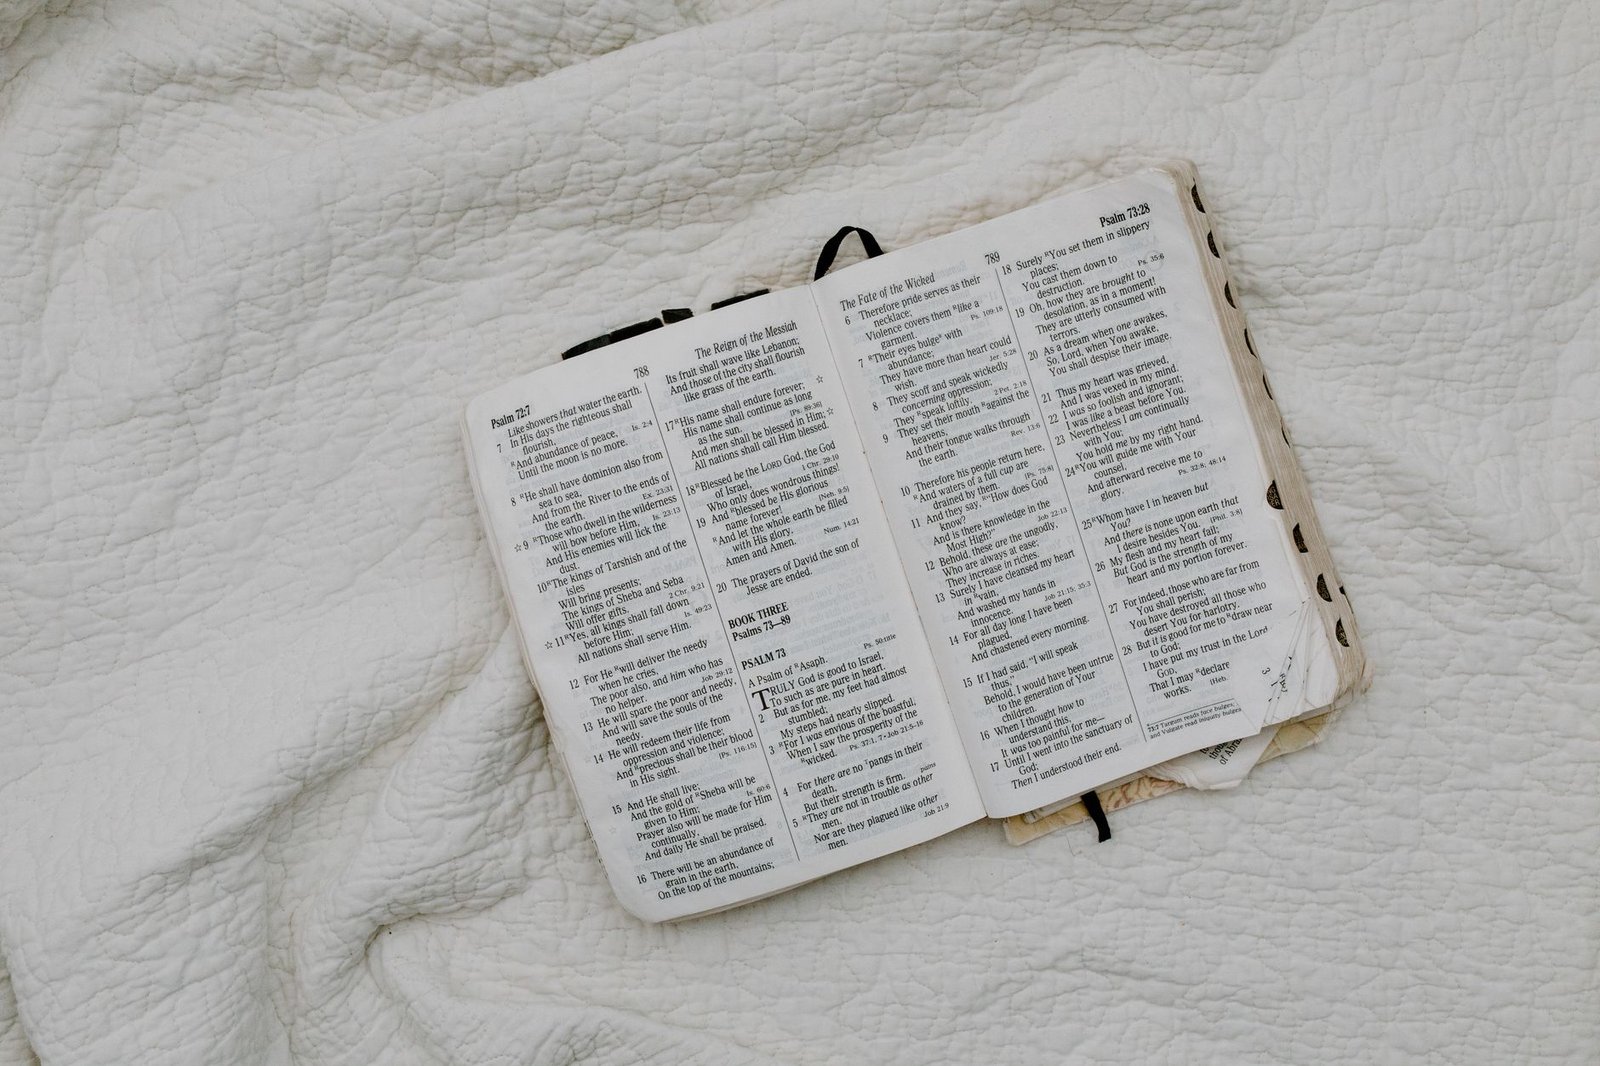 Psalm 72:7
788
The Reign of the Messiah
Like showers that water the earth.
7 In His days the righteous shall
flourish, Is. 2:4
RAnd abundance of peace,
Until the moon is no more.
8 RHe shall have dominion also from
sea to sea,
And from the River to the ends of
the earth. Ex. 23:31
☆ 9 RThose who dwell in the wilderness
will bow before Him, Is. 23:13
And His enemies will lick the
dust.
10 RThe kings of Tarshish and of the
isles
Will bring presents;
The kings of Sheba and Seba
Will offer gifts. 2 Chr. 9:21
☆ 11 RYes, all kings shall fall down
before Him; Is. 49:23
All nations shall serve Him.
12 For He Rwill deliver the needy
when he cries,
The poor also, and him who has
no helper. Job 29:12
13 He will spare the poor and needy,
And will save the souls of the
needy.
14 He will redeem their life from
oppression and violence;
And Rprecious shall be their blood
in His sight. [Ps. 116:15]
15 And He shall live;
And the gold of RSheba will be
given to Him; Is. 60:6
Prayer also will be made for Him
continually,
And daily He shall be praised.
16 There will be an abundance of
grain in the earth,
On the top of the mountains;
Its fruit shall wave like Lebanon;
And those of the city shall flourish
like grass of the earth.
17 RHis name shall endure forever; ☆
His name shall continue as long
as the sun. [Ps. 89:36]
And men shall be blessed in Him; ☆
All nations shall call Him blessed.
18 RBlessed be the LORD God, the God
of Israel, 1 Chr. 29:10
Who only does wondrous things!
19 And Rblessed be His glorious
name forever! [Neh. 9:5]
RAnd let the whole earth be filled
with His glory. Num. 14:21
Amen and Amen.
20 The prayers of David the son of
Jesse are ended.
BOOK THREE
Psalms 73—89
PSALM 73
A Psalm of RAsaph. Ps. 50:title
TRULY God is good to Israel,
To such as are pure in heart.
2 But as for me, my feet had almost
stumbled;
My steps had nearly slipped.
3 RFor I was envious of the boastful,
When I saw the prosperity of the
Rwicked. Ps. 37:1, 7 • Job 21:5–16
4 For there are no Tpangs in their
death, pains
But their strength is firm.
5 RThey are not in trouble as other
men, Job 21:9
Nor are they plagued like other
men.
The Fate of the Wicked
789
Psalm 73:28
6 Therefore pride serves as their
necklace;
Violence covers them Rlike a
garment. Ps. 109:18
7 RTheir eyes bulge with
abundance;
They have more than heart could
wish. Jer. 5:28
8 They scoff and speak wickedly
concerning oppression;
They Rspeak loftily. 2 Pet. 2:18
9 They set their mouth Ragainst the
heavens, Rev. 13:6
And their tongue walks through
the earth.
10 Therefore his people return here,
RAnd waters of a full cup are
drained by them. [Ps. 75:8]
11 And they say, R"How does God
know? Job 22:13
And is there knowledge in the
Most High?"
12 Behold, these are the ungodly,
Who are always at ease;
They increase in riches.
13 Surely I have cleansed my heart
in Rvain, Job 21:15; 35:3
And washed my hands in
innocence.
14 For all day long I have been
plagued,
And chastened every morning.
15 If I had said, "I will speak
thus,"
Behold, I would have been untrue
to the generation of Your
children.
16 When I thought how to
understand this,
It was too painful for me—
17 Until I went into the sanctuary of
God;
Then I understood their end.
18 Surely RYou set them in slippery
places;
You cast them down to
destruction. Ps. 35:6
19 Oh, how they are brought to
desolation, as in a moment!
They are utterly consumed with
terrors.
20 As a dream when one awakes,
So, Lord, when You awake,
You shall despise their image.
21 Thus my heart was grieved,
And I was vexed in my mind.
22 I was so foolish and ignorant;
I was like a beast before You.
23 Nevertheless I am continually
with You;
You hold me by my right hand.
24 RYou will guide me with Your
counsel, Ps. 32:8; 48:14
And afterward receive me to
glory.
25 RWhom have I in heaven but
You? [Phil. 3:8]
And there is none upon earth that
I desire besides You.
26 My flesh and my heart fail;
But God is the strength of my
heart and my portion forever.
27 For indeed, those who are far from
You shall perish;
You have destroyed all those who
desert You for harlotry.
28 But it is good for me to Rdraw near
to God;
I have put my trust in the Lord
GOD,
That I may Rdeclare
works. [Heb.
73:7 Targum reads face bulges;
and Vulgate read iniquity bulges.
of Abra